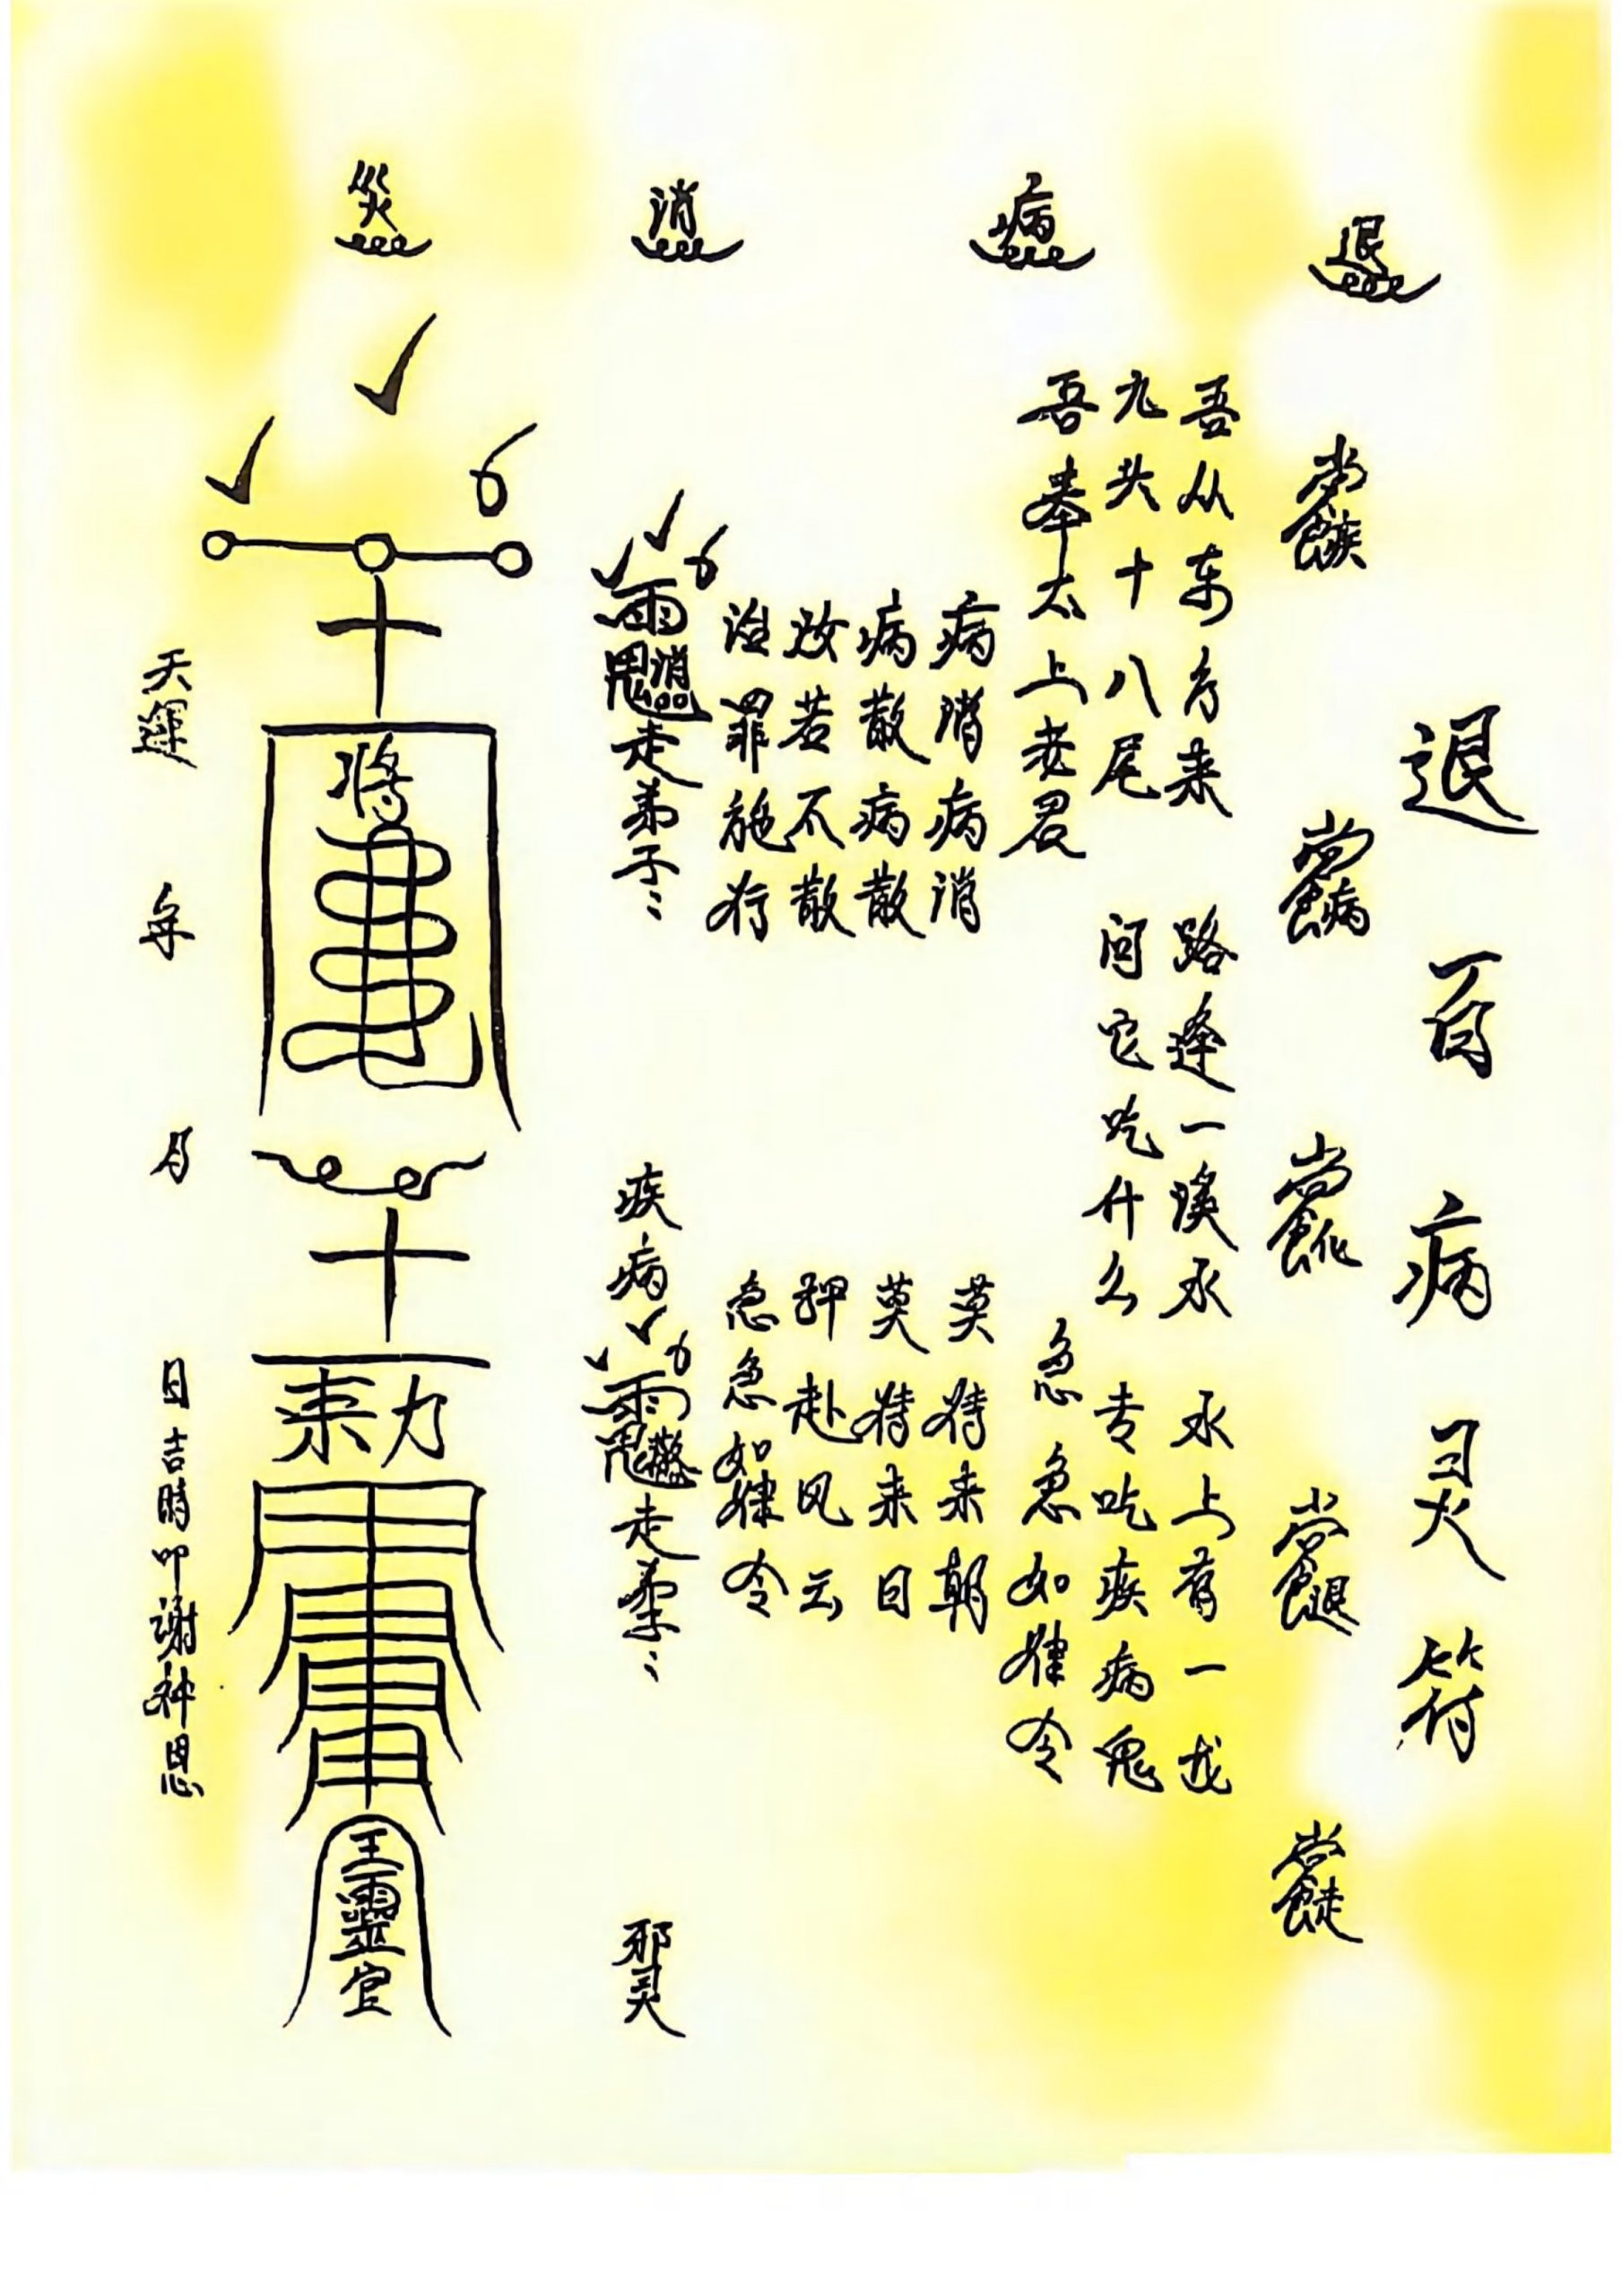 退病消災
退百病灵符
吾从东方来 路逢一溪水 水上有一龙
九头十八尾 问它吃什么 专吃疾病鬼
吾奉太上老君 急急如律令
病消病消 莫待来朝
病散病散 莫待来日
汝若不散 押赴风云
治罪施行 急急如律令
走弟子〻疾病
走弟子〻邪灵
将
敕
王靈官
天運 年 月 日吉時叩謝神恩